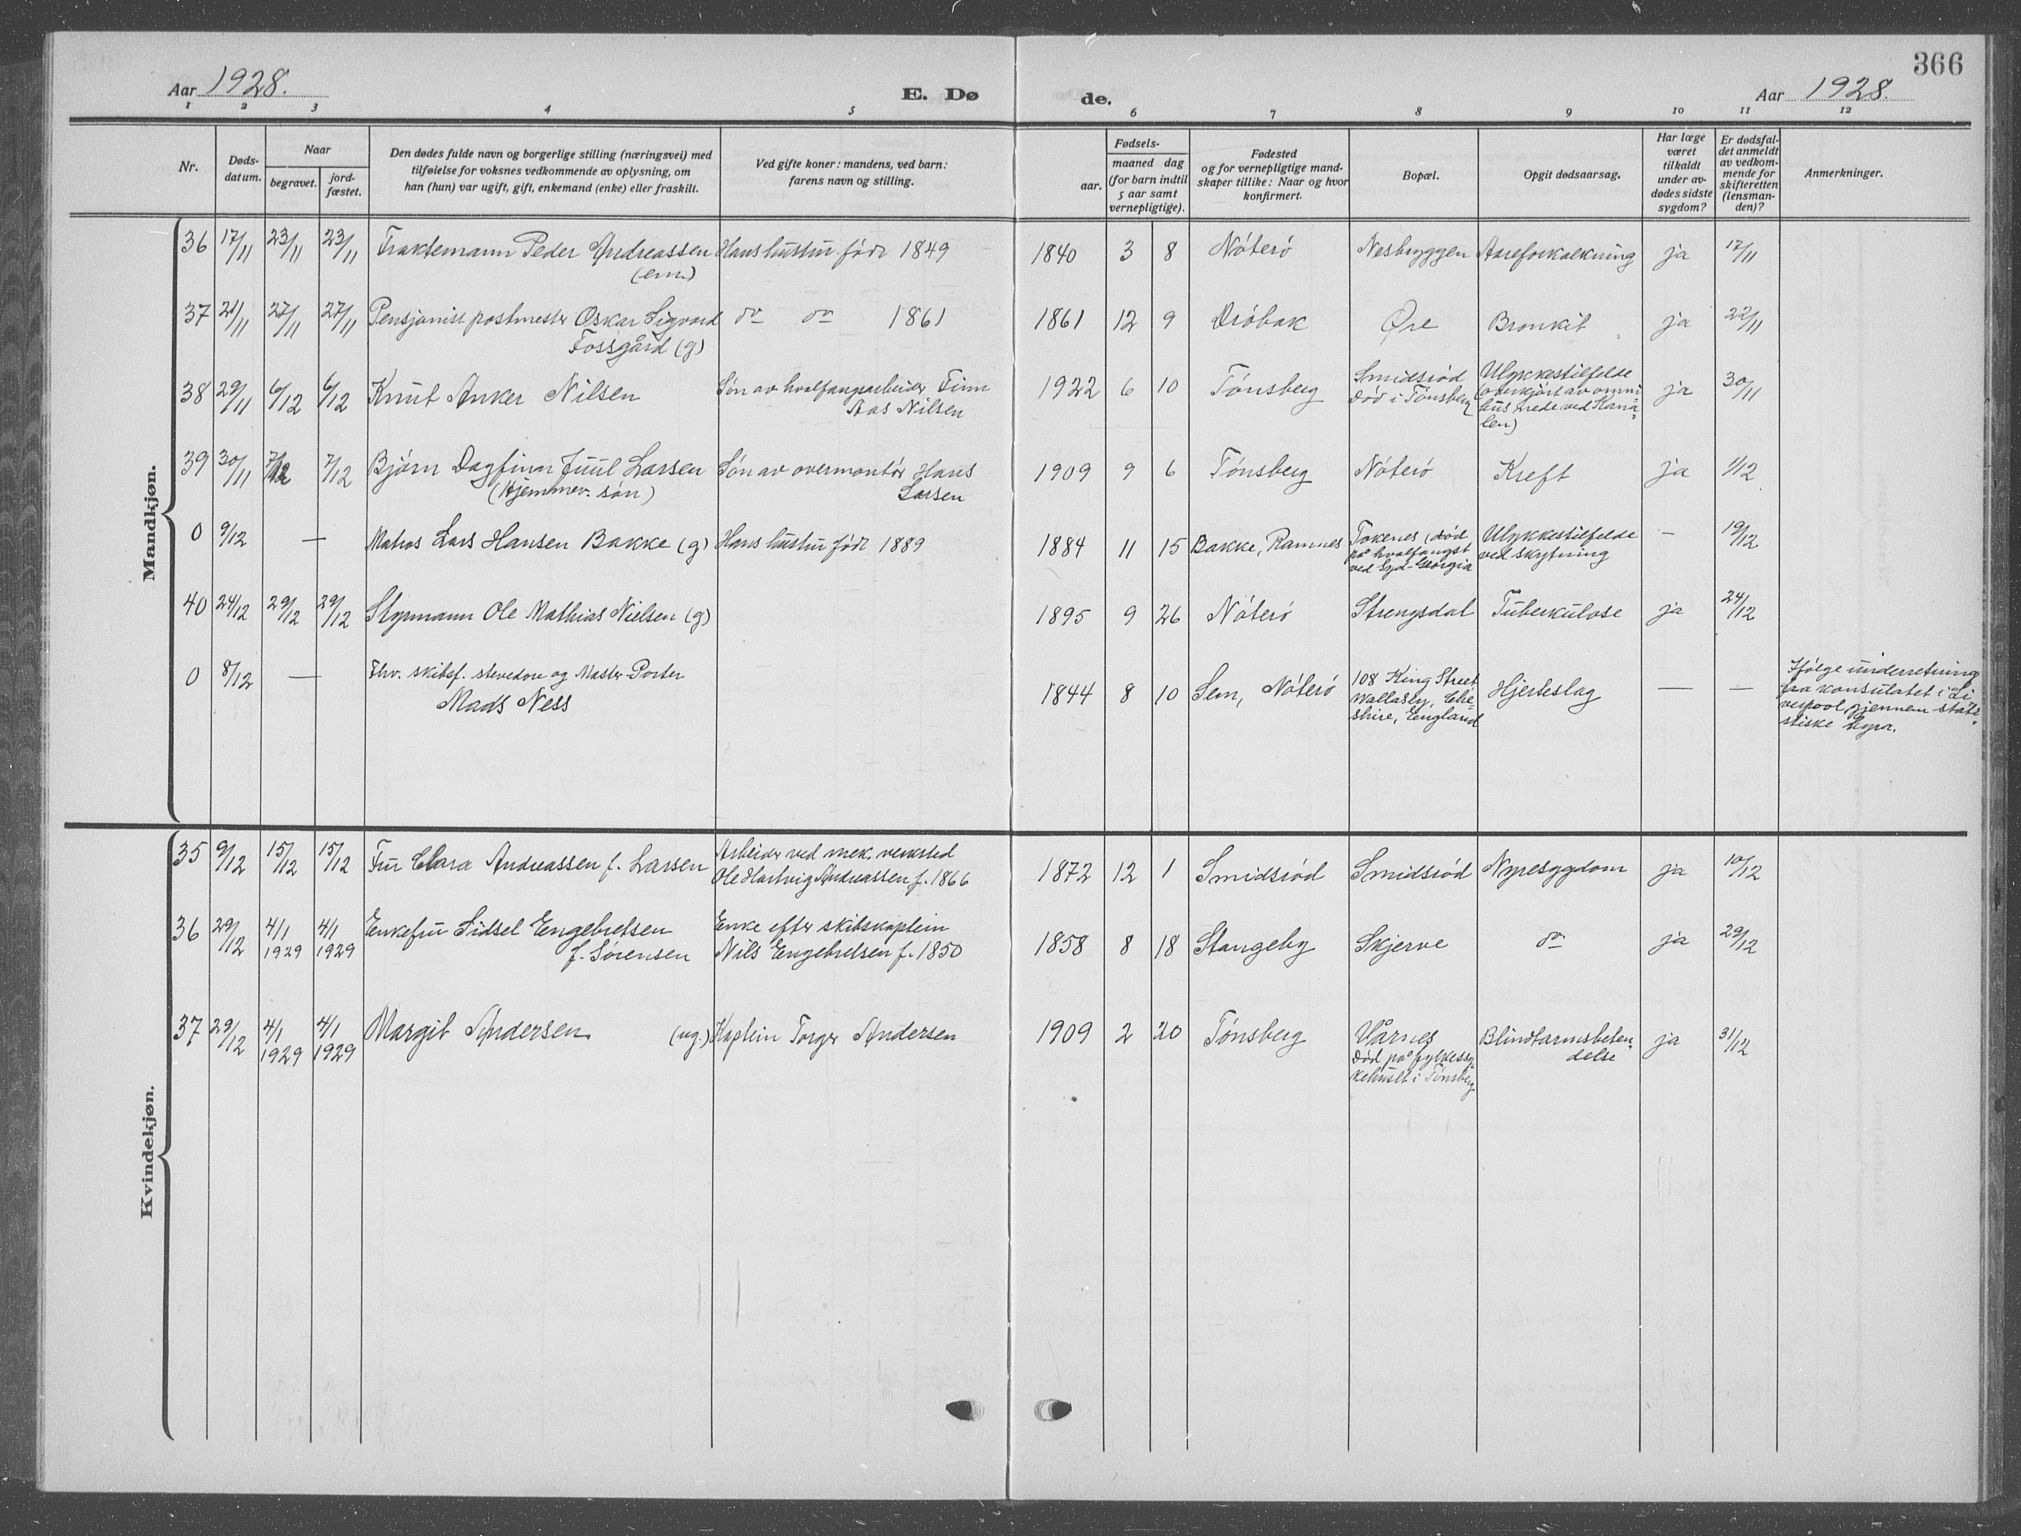 366
Aar 1928.
E. Døde.
Aar 1928.
1 2 3 4 5 6 7 8 9 10 11 12
Nr.
Døds-
datum.
Naar
begravet.
jord-
fæstet.
Den dødes fulde navn og borgerlige stilling (næringsvei) med
tilføielse for voksnes vedkommende av oplysning, om
han (hun) var ugift, gift, enkemand (enke) eller fraskilt.
Ved gifte koner: mandens, ved barn:
farens navn og stilling.
Fødsels-
aar.
maaned dag
(for barn indtil
5 aar samt
vernepligtige).
Fødested
og for vernepligtige mand-
skaper tillike: Naar og hvor
konfirmert.
Bopæl.
Opgit dødsaarsag.
Har læge
været
tilkaldt
under av-
dødes sidste
sygdom?
Er dødsfal-
det anmeldt
av vedkom-
mende for
skifteretten
(lensman-
den)?
Anmerkninger.
Mandkjøn.
36 17/11 23/11 23/11 Fraktemann Peder Andreassen Hans hustru født 1849 1840 3 8 Nøterø Nesbryggen Aareforkalkning ja 17/11
(em.)
37 21/11 27/11 27/11 Pensjonist postmester Oskar Sigvard do do 1861 1861 12 9 Drøbak Øre Bronkit ja 22/11
Fossgård (g)
38 29/11 6/12 6/12 Knut Anker Nilsen Søn av hvalfangsarbeider Finn 1922 6 10 Tønsberg Smidsrød Ulykkestilfelde ja 30/11
Aas Nilsen død i Tønsberg (overkjørt av omni-
bus nede ved Kana-
len)
39 30/11 7/12 7/12 Bjørn Dagfinn Juul Larsen Søn av overmontør Hans 1909 9 6 Tønsberg Nøterø Kreft ja 1/12
(Hjemmev. søn) Larsen
0 9/12 — Matros Lars Hansen Bakke (g) Hans hustru født 1889 1884 11 15 Bakke, Ramnes Tokenes (død Ulykkestilfelde — 19/12
på hvalfangst ved skytning
ved Syd-Georgia
40 24/12 29/12 29/12 Styrmann Ole Mathias Nielsen (g) 1895 9 26 Nøterø Strengsdal Tuberkulose ja 24/12
0 8/12 — Fhv. skibsf. stevedore og Master Porter 1844 8 10 Sem, Nøterø 108 King Street Hjerteslag — — Ifølge underretning
Mads Ness Wallasey, Che- fra konsulatet i Li-
shire, England verpool gjennem stati-
stiske byrå.
Kvindekjøn.
35 9/12 15/12 15/12 Fru Clara Andreassen f. Larsen Arbeider ved mek. verksted 1872 12 1 Smidsrød Smidsrød Nyresygdom ja 10/12
Ole Hartvig Andreassen f. 1866
36 29/12 4/1 4/1 Enkefru Sidsel Engebretsen Enke efter skibskaptein 1858 8 18 Stangeby Skjerve do ja 29/12
1929 1929 f. Sørensen Nils Engebretsen f. 1850
37 29/12 4/1 4/1 Margit Andersen (ug.) Kaptein Torger Andersen 1909 2 20 Tønsberg Vårnes Blindtarmsbeten- ja 31/12
1929 1929 død på fylkessy- delse
kehuset i Tønsberg